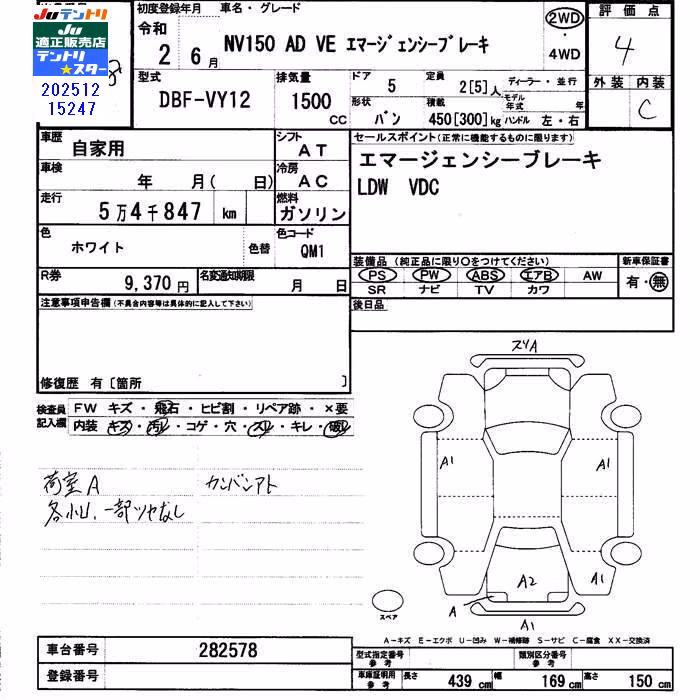 JUテントリ
JU
適正販売店
テントリ
★スター
202512
15247
初度登録年月
令和
2 6月
車名・グレード
NV150 AD VE エマージェンシーブレーキ
2WD
4WD
評価点
4
型式
DBF-VY12
排気量
1500
CC
ドア
5
定員
2[5]人
ディーラー・並行
形状
バン
積載
450[300]kg
モデル年式 年
ハンドル 左・右
外装 内装
C
車歴
自家用
シフト
AT
セールスポイント(正常に機能するものに限ります)
エマージェンシーブレーキ
LDW VDC
車検
年 月( 日)
冷房
AC
走行
5万4千847 km
燃料
ガソリン
色
ホワイト
色替
色コード
QM1
装備品(純正品に限り○をつけてください)
PS PW ABS エアB AW
SR ナビ TV カワ
新車保証書
有・無
R券
9,370円
名変通知期限
月 日
後日品
注意事項申告欄(不具合内容等は具体的に記入して下さい)
修復歴 有〔箇所 〕
検査員
記入欄
FW キズ・飛石・ヒビ割・リペア跡・×要
内装 キズ・汚レ・コゲ・穴・スレ・キレ・破レ
荷室A
カンバンアト
各小U、一部ツヤなし
スリA
A1
A1
A2
A1
A
A1
スペア
A-キズ E-エクボ U-凹み W-補修跡 S-サビ C-腐食 XX-交換済
車台番号
282578
登録番号
型式指定番号
参考
類別区分番号
参考
車庫証明用
参考
長さ 439cm
幅 169cm
高さ 150cm